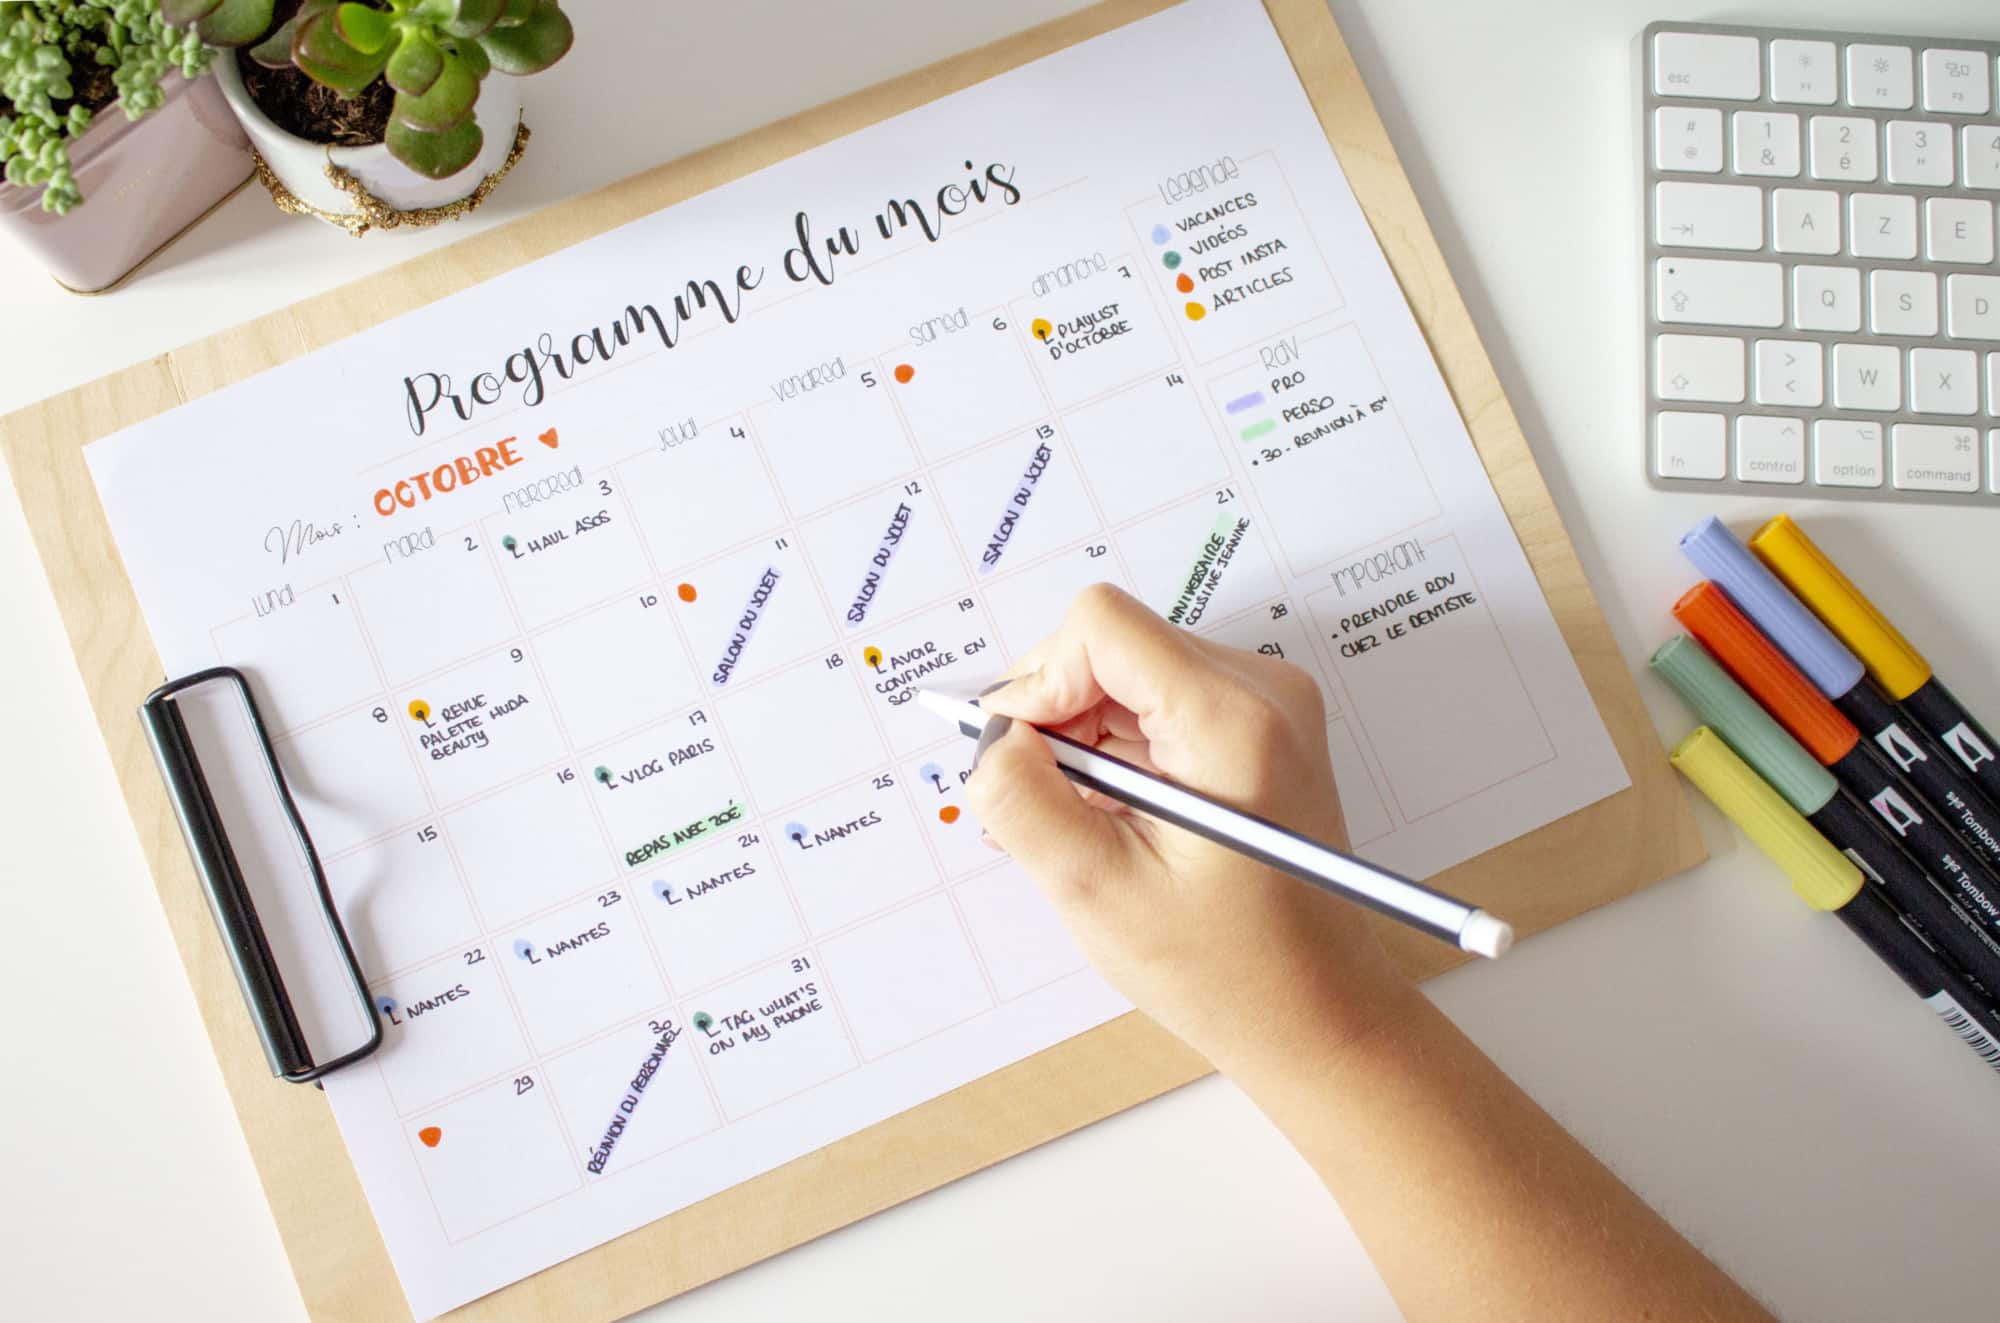 Programme du mois
Mois : OCTOBRE
LUNDI
MARDI
MERCREDI
JEUDI
VENDREDI
SAMEDI
DIMANCHE
1
2
3
HAUL ASOS
4
5
6
7
PLAYLIST
D'OCTOBRE
8
9
REVUE
PALETTE HUDA
BEAUTY
10
11
SALON DU JOUET
12
SALON DU JOUET
13
SALON DU JOUET
14
15
16
17
VLOG PARIS
REPAS AVEC ZOÉ
18
19
AVOIR
CONFIANCE EN
20
21
COUSINE JEANNE
22
NANTES
23
NANTES
24
NANTES
25
NANTES
28
29
30
RÉUNION DU PERSONNEL
31
TAG WHAT'S
ON MY PHONE
LÉGENDE
VACANCES
VIDÉOS
POST INSTA
ARTICLES
RDV
PRO
PERSO
• 30 - REUNION À 15H
IMPORTANT
• PRENDRE RDV
CHEZ LE DENTISTE
esc
F1
F2
F3
#
@
1
&
2
é
3
"
4
A
Z
E
Q
S
D
>
<
W
X
fn
control
option
command
Tombow
Tombow